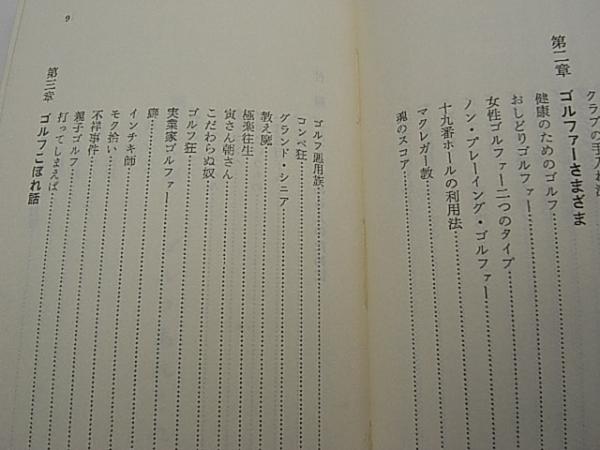 クラブの手入れ法
第二章 ゴルファーさまざま
健康のためのゴルフ
おしどりゴルファー
女性ゴルファー二つのタイプ
ノン・プレーイング・ゴルファー
十九番ホールの利用法
マクレガー教
魂のスコア
ゴルフ適用族
コンペ狂
グランド・シニア
教え魔
極楽往生
寅さん朝さん
こだわらぬ奴
ゴルフ狂
実業家ゴルファー
癖
インチキ師
モク拾い
不祥事件
親子ゴルフ
打ってしまえば
第三章 ゴルフこぼれ話
9